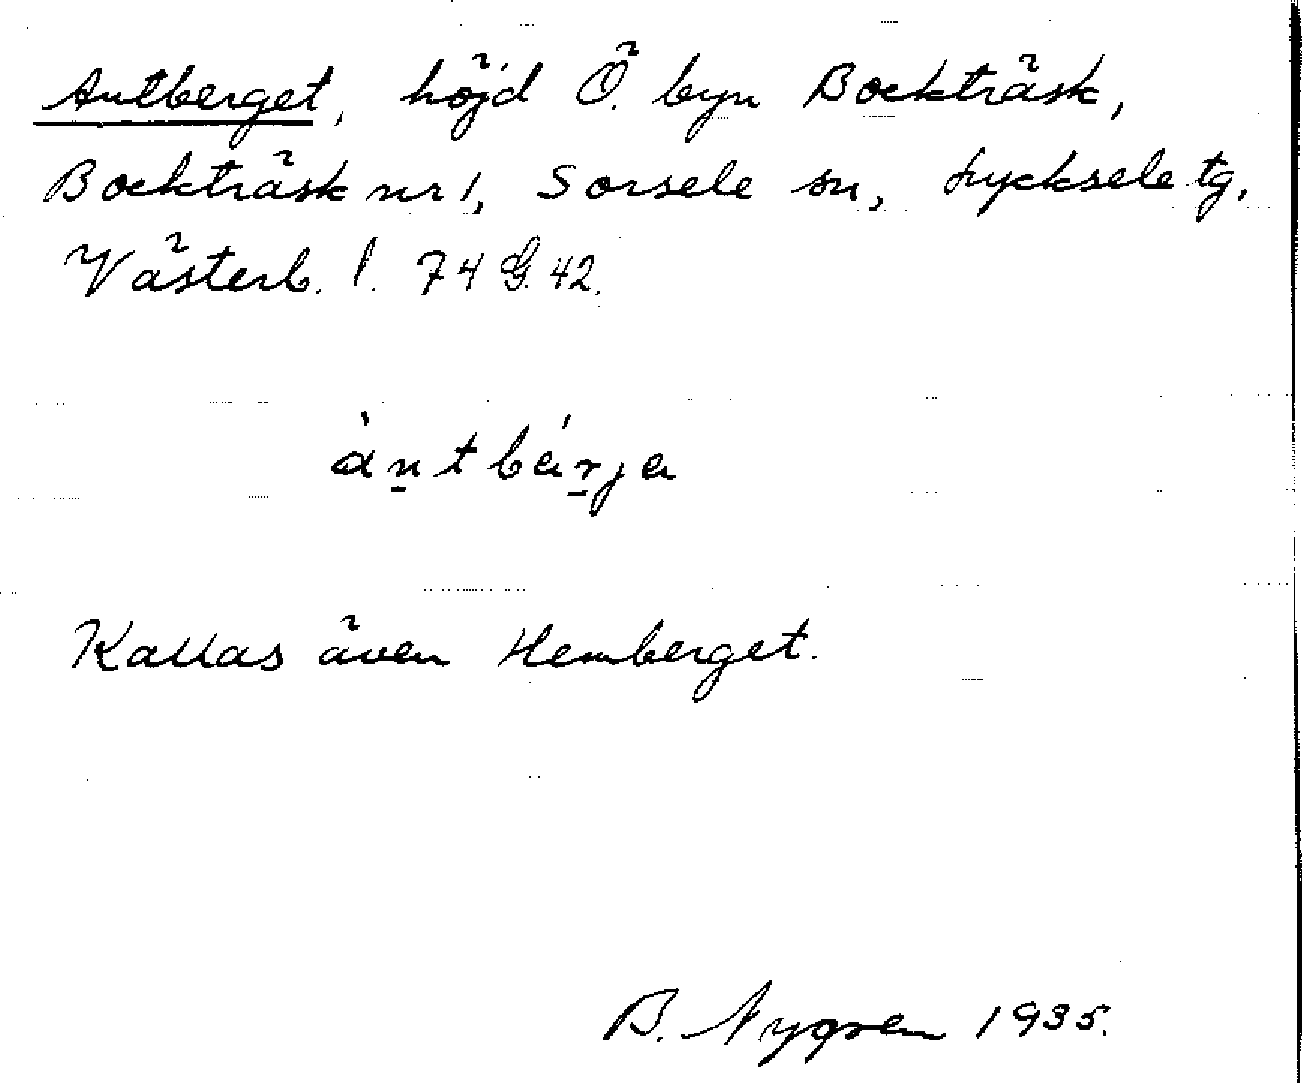 Antberget, höjd Ö. byn Bockträsk,
Bockträsk nr 1, Sorsele sn, Lycksele tg,
Västerb. l. 74 G. 42.
àntbárja
Kallas även Hemberget.
B. Nygren 1935.